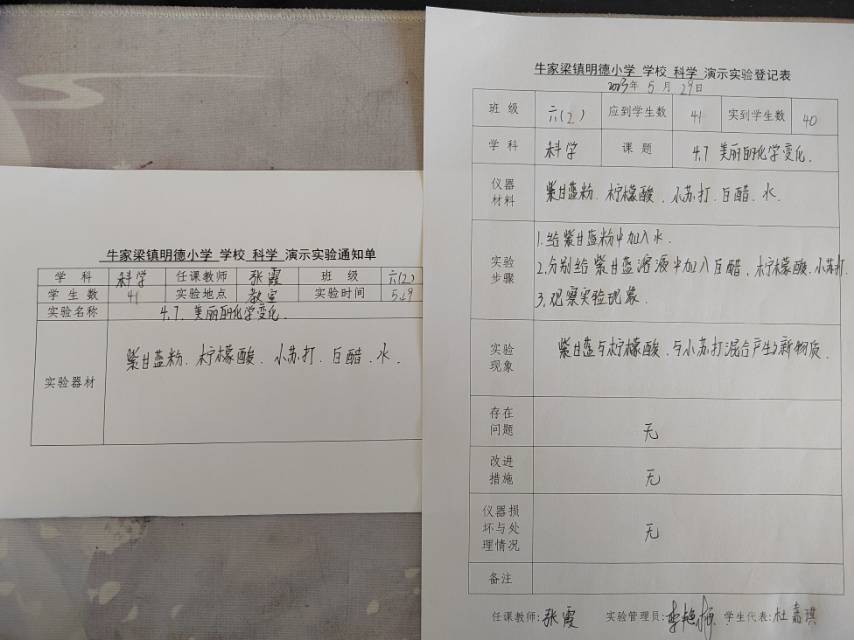 牛家梁镇明德小学 学校 科学 演示实验通知单
学 科 科学 任课教师 张霞 班 级 六(2)
学 生 数 41 实验地点 教室 实验时间 5.29
实验名称 4.7. 美丽的化学变化.
实验器材 紫甘蓝粉、柠檬酸、小苏打、白醋、水.
牛家梁镇明德小学 学校 科学 演示实验登记表
2023年 5 月 29日
班 级 六(2) 应到学生数 41 实到学生数 40
学 科 科学 课 题 4.7 美丽的化学变化.
仪器
材料
紫甘蓝粉、柠檬酸、小苏打、白醋、水.
实验
步骤
1.给紫甘蓝粉中加入水.
2.分别给紫甘蓝溶液中加入白醋、柠檬酸、小苏打.
3.观察实验现象.
实验
现象
紫甘蓝与柠檬酸、与小苏打混合产生了新物质.
存在
问题
无
改进
措施
无
仪器损
坏与处
理情况
无
备注
任课教师:张霞 实验管理员: 学生代表:杜